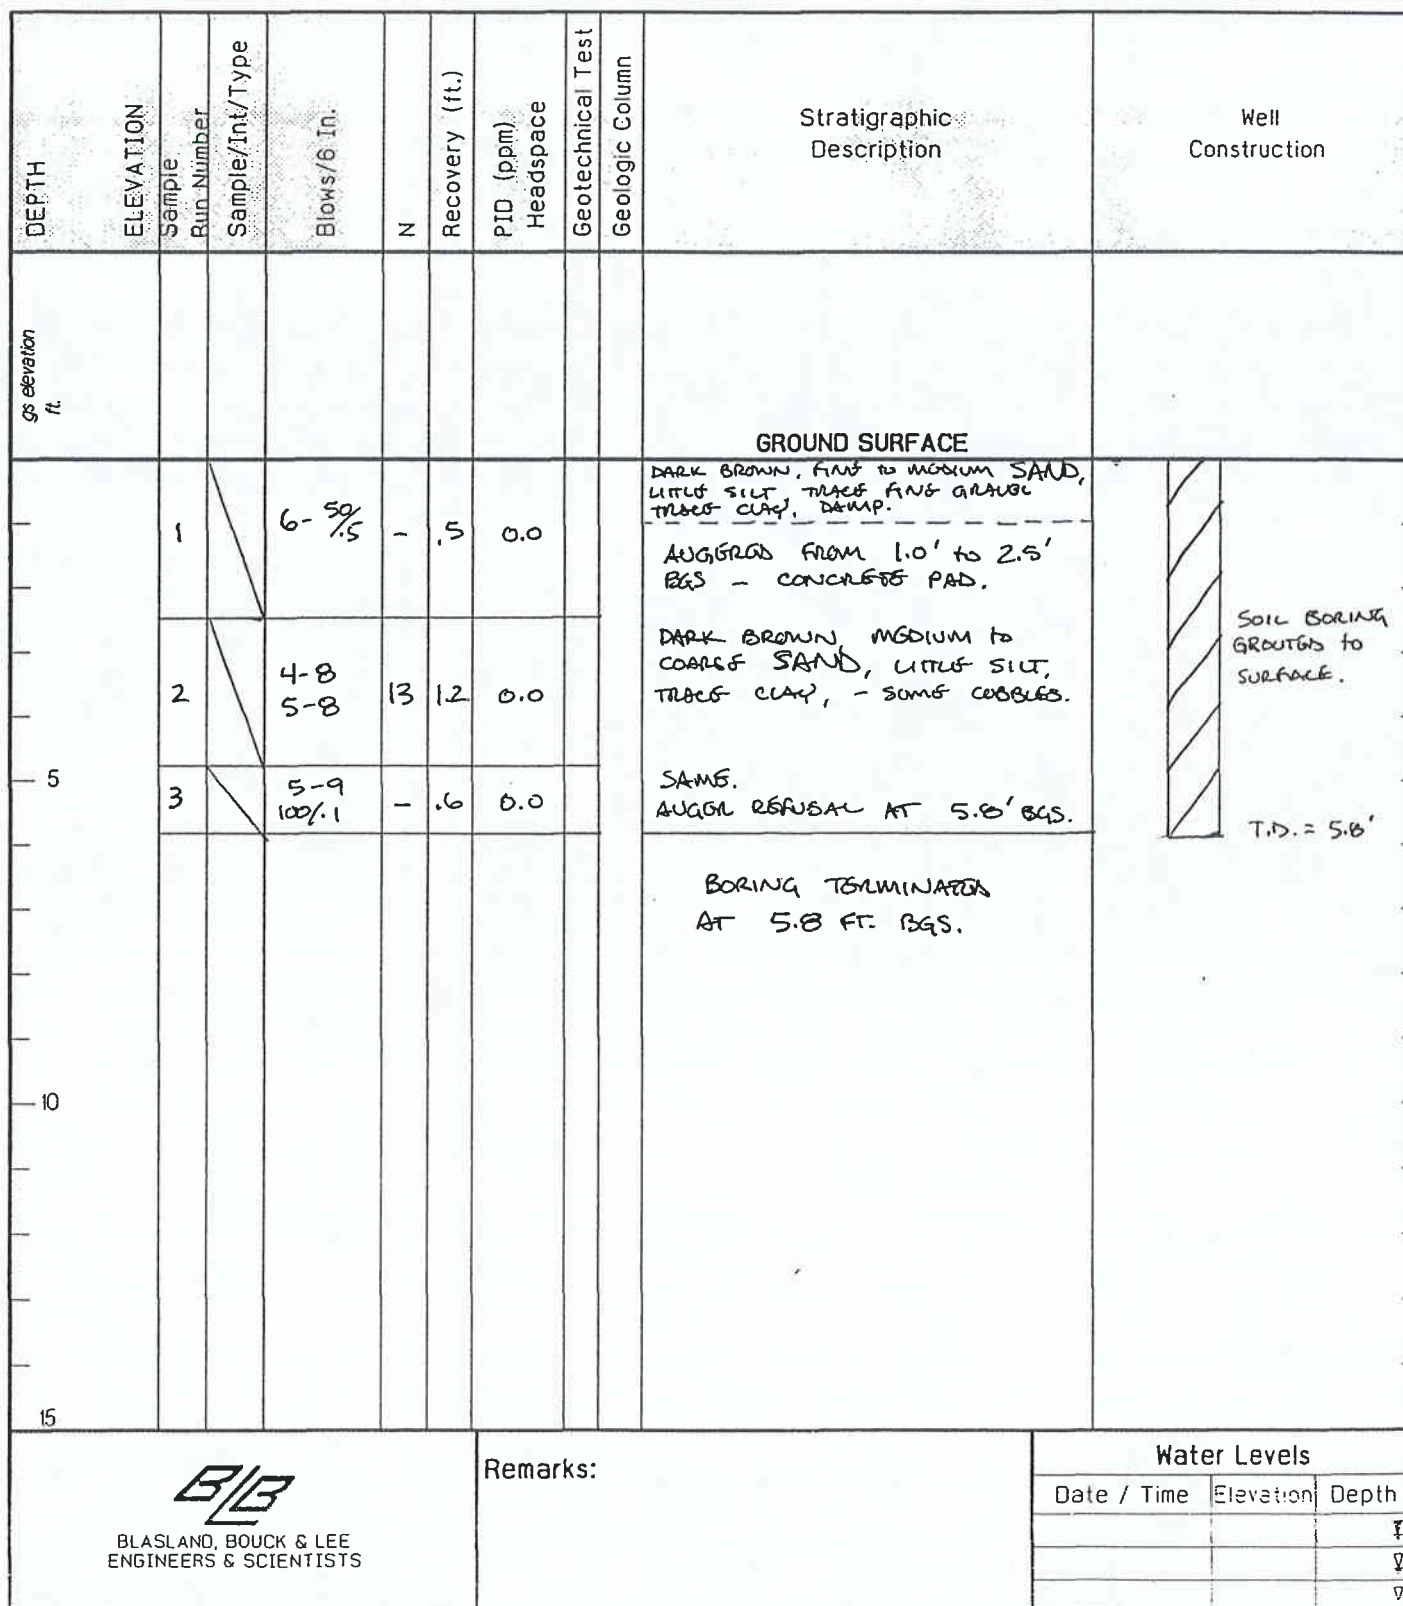 DEPTH
ELEVATION
Sample
Run Number
Sample/Int/Type
Blows/6 In.
N
Recovery (ft.)
PID (ppm)
Headspace
Geotechnical Test
Geologic Column
Stratigraphic
Description
Well
Construction
gs elevation
ft.
GROUND SURFACE
DARK BROWN, FINE to MEDIUM SAND,
LITTLE SILT, TRACE FINE GRAVEL
TRACE CLAY, DAMP.
1 6- 50/.5 - .5 0.0
AUGERED FROM 1.0' to 2.5'
BGS - CONCRETE PAD.
DARK BROWN, MEDIUM to
COARSE SAND, LITTLE SILT,
TRACE CLAY, - SOME COBBLES.
2 4-8 13 1.2 0.0
5-8
SOIL BORING
GROUTED to
SURFACE.
5
3 5-9 - .6 0.0
100/.1
SAME.
AUGER REFUSAL AT 5.8' BGS.
T.D. = 5.8'
BORING TERMINATED
AT 5.8 FT. BGS.
10
15
BLB
BLASLAND, BOUCK & LEE
ENGINEERS & SCIENTISTS
Remarks:
Water Levels
Date / Time Elevation Depth